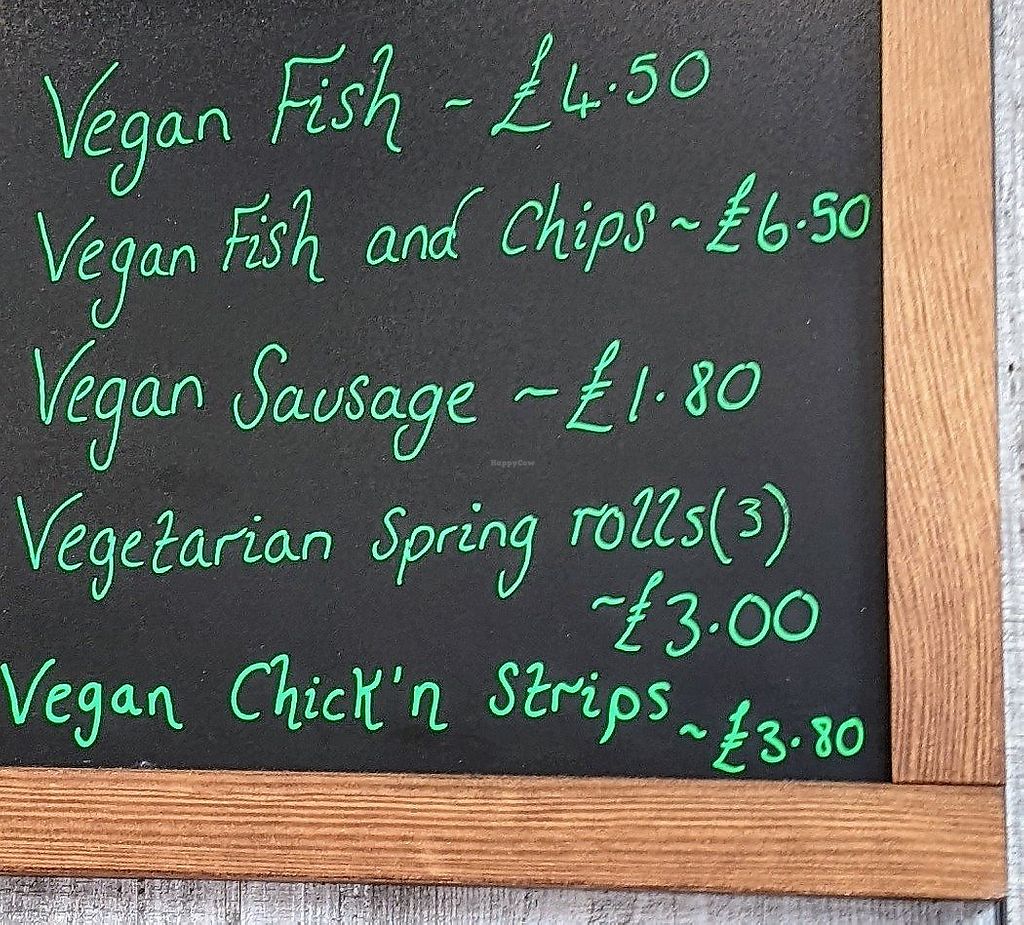 Vegan Fish ~ £4.50
Vegan Fish and Chips ~ £6.50
Vegan Sausage ~ £1.80
HappyCow
Vegetarian Spring rolls (3)
~ £3.00
Vegan Chick'n Strips ~ £3.80